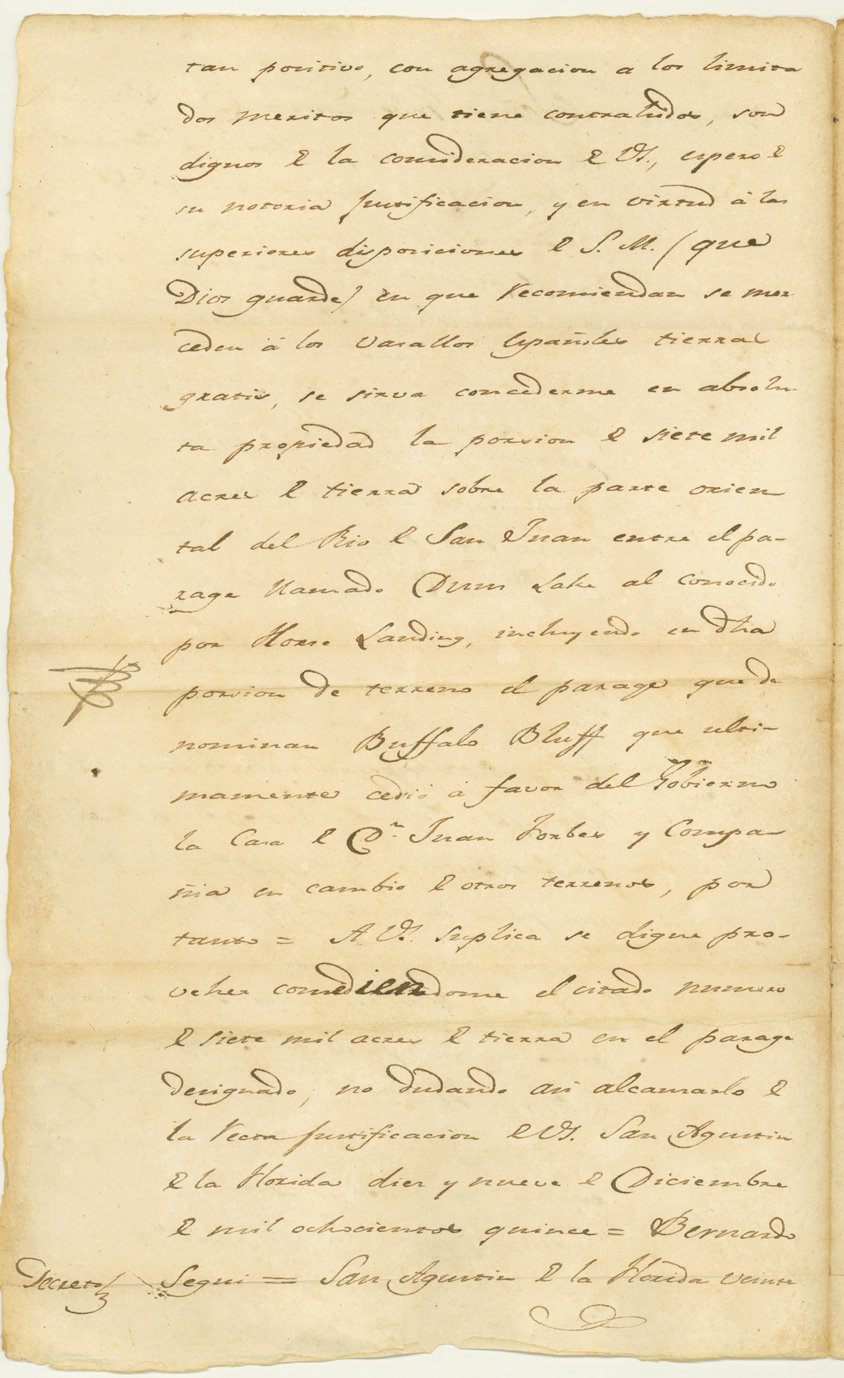 tan positivo, con agregacion a los limita
dos meritos que tiene contrahidos, son
dignos de la consideracion de VS., espero de
su notoria justificacion, y en virtud á las
superiores disposiciones de S. M. (que
Dios guarde) en que recomiendan se mer
ceden á los vasallos Españoles tierras
gratis, se sirva concederme en absolu
ta propiedad la porsion de siete mil
acres de tierra sobre la parte orien
tal del Rio de San Juan entre el pa-
rage llamado Dun's Lake al conocido
por Horse Landing, incluyendo en dha
porsion de terreno el parage que de
nominan Buffalo Bluff que ulti-
mamente cedió á favor del Gobierno
la Casa de Dn. Juan Forbes y Compa
ñia en cambio de otros terrenos, por
tanto = A VS. suplica se digne pro-
veher concediendome el citado numero
de siete mil acres de tierra en el parage
designado, no dudando asi alcansarlo de
la recta justificacion de VS. San Agustin
de la Florida diez y nueve de Diciembre
de mil ochocientos quince = Bernardo
Decreto Segui = San Agustin de la Florida veinte